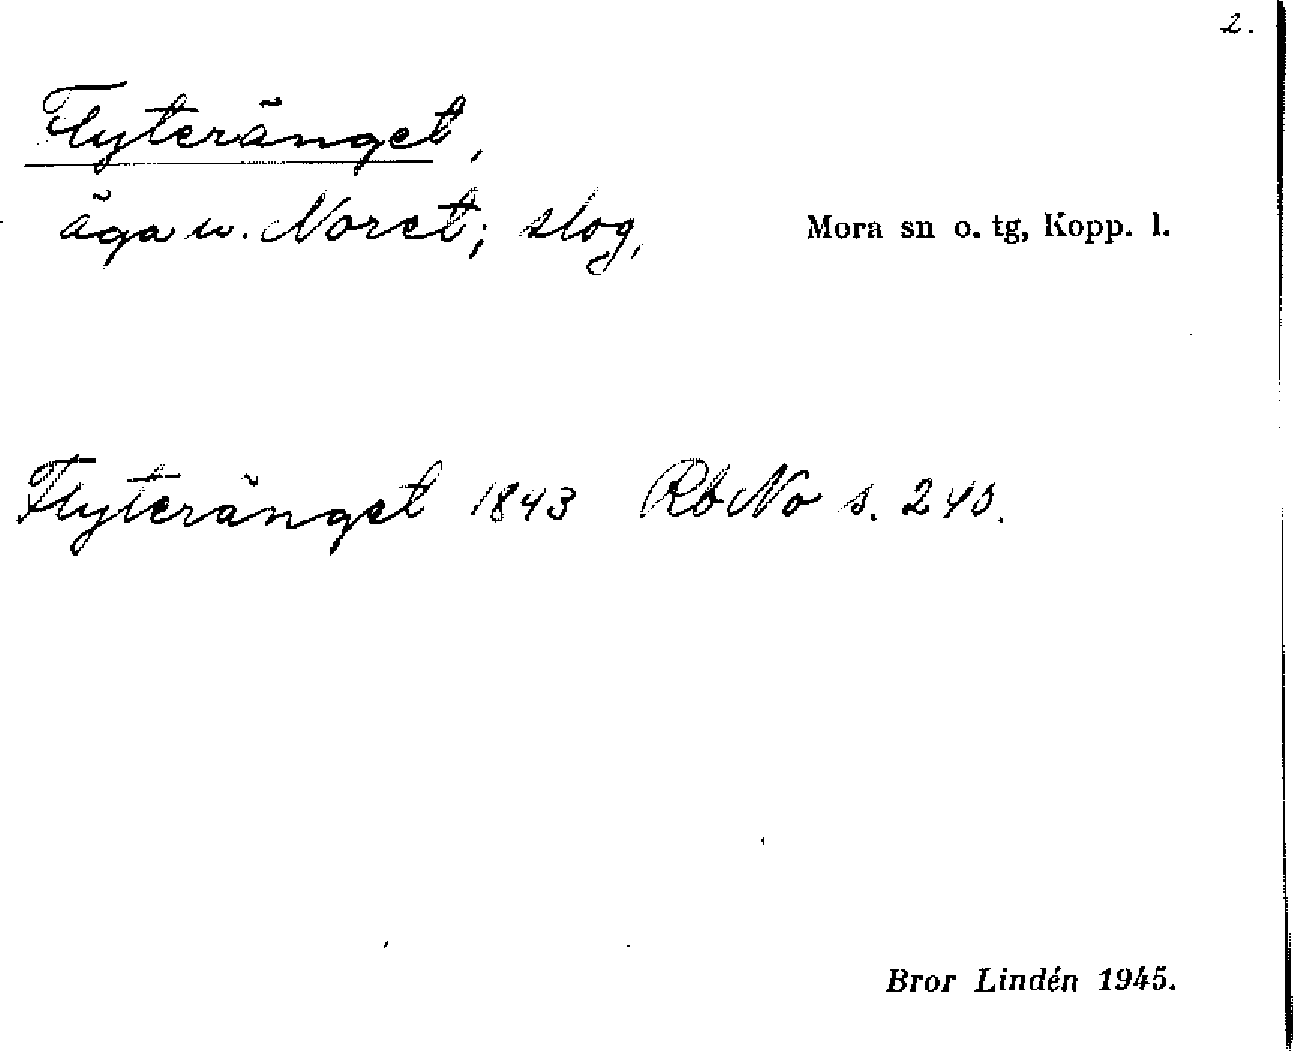 2.
Flyteränget,
äga u. Noret; slog, Mora sn o. tg, Kopp. l.
Flyteränget 1843 RbNo s. 240.
Bror Lindén 1945.